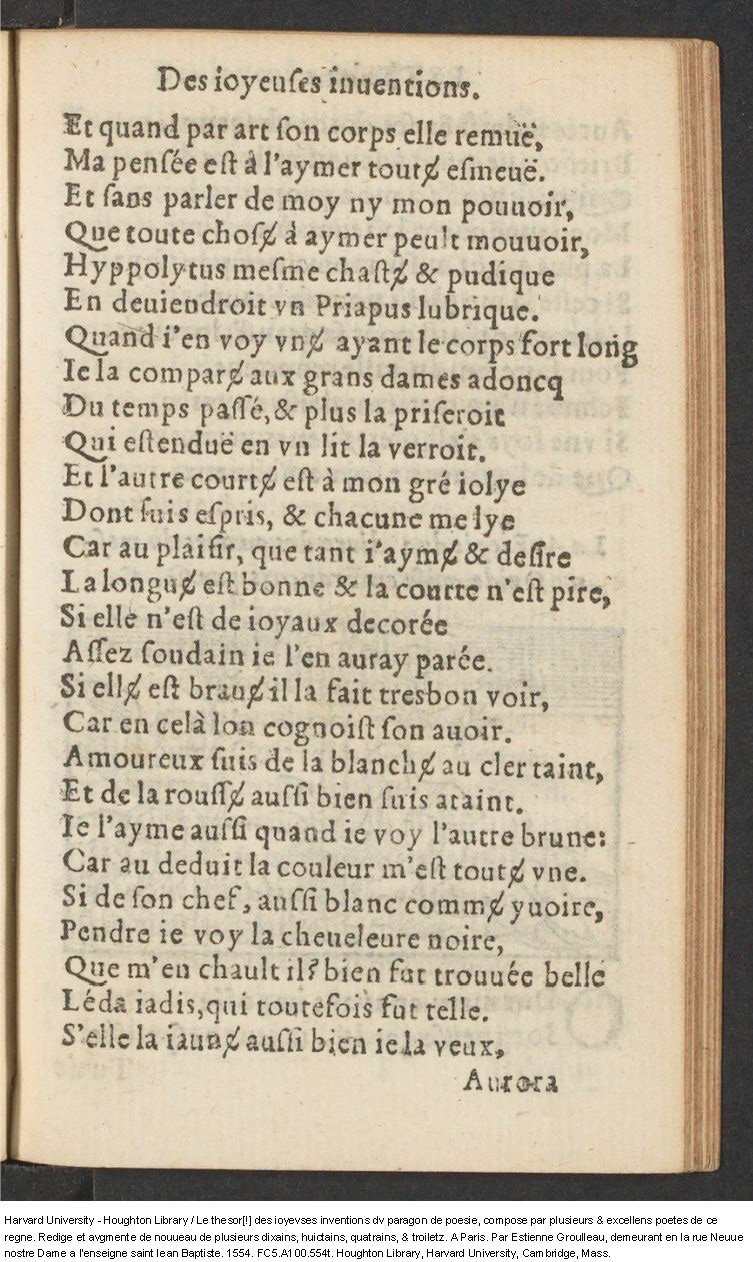 Des ioyeuſes inuentions.
Et quand par art ſon corps elle remuë,
Ma penſée eſt à l'aymer toutɇ eſmeuë.
Et ſans parler de moy ny mon pouuoir,
Que toute choſɇ à aymer peult mouuoir,
Hyppolytus meſme chaſtɇ & pudique
En deuiendroit vn Priapus lubrique.
Quand i'en voy vnɇ ayant le corps fort long
Ie la comparɇ aux grans dames adoncq
Du temps paſſé, & plus la priſeroit
Qui eſtenduë en vn lit la verroit.
Et l'autre courtɇ eſt à mon gré iolye
Dont ſuis eſpris, & chacune me lye
Car au plaiſir, que tant i'aymɇ & deſire
La longuɇ eſt bonne & la courte n'eſt pire,
Si elle n'eſt de ioyaux decorée
Aſſez ſoudain ie l'en auray parée.
Si ellɇ eſt brauɇ il la fait tresbon voir,
Car en celà lon cognoiſt ſon auoir.
Amoureux ſuis de la blanchɇ au cler taint,
Et de la rouſſɇ auſſi bien ſuis ataint.
Ie l'ayme auſſi quand ie voy l'autre brune:
Car au deduit la couleur m'eſt toutɇ vne.
Si de ſon chef, auſſi blanc commɇ yuoire,
Pendre ie voy la cheueleure noire,
Que m'en chault il? bien fut trouuée belle
Léda iadis, qui toutefois fut telle.
S'elle la iaunɇ auſſi bien ie la veux,
Aurora
Harvard University - Houghton Library / Le thesor[!] des ioyevses inventions dv paragon de poesie, compose par plusieurs & excellens poetes de ce
regne. Redige et avgmente de nouueau de plusieurs dixains, huictains, quatrains, & troiletz. A Paris. Par Estienne Groulleau, demeurant en la rue Neuue
nostre Dame a l'enseigne saint Iean Baptiste. 1554. FC5.A100.554t. Houghton Library, Harvard University, Cambridge, Mass.